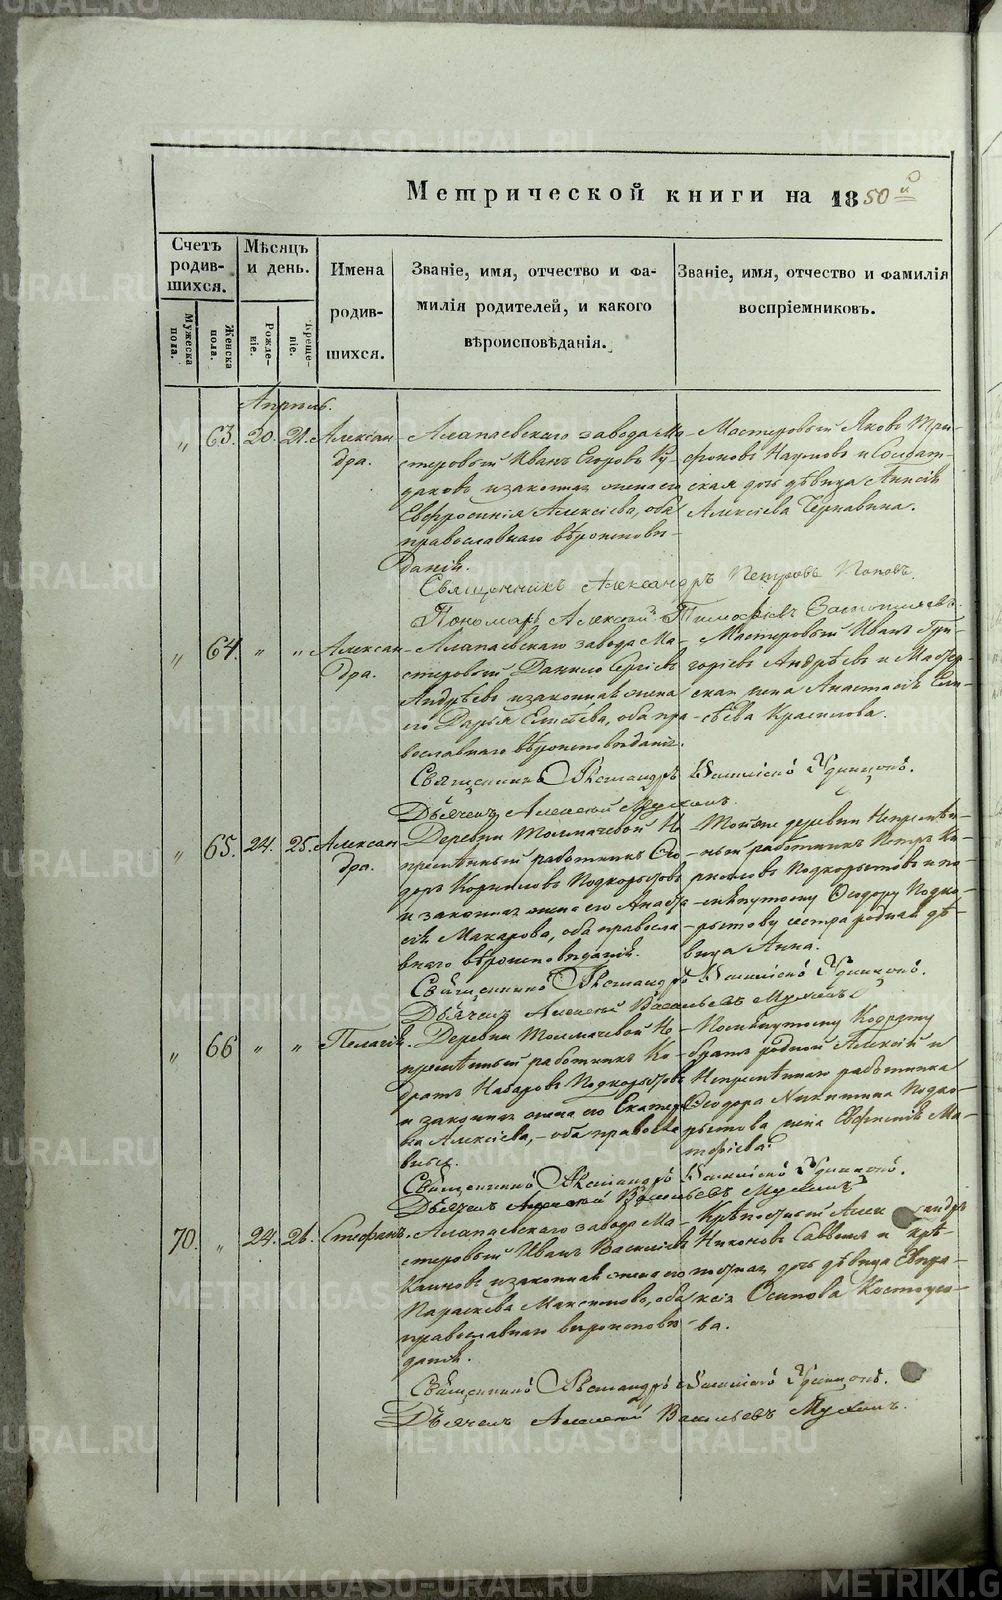 Метрической книги на 1850й
Счетъ родив-шихся.
Мужеска пола.
Женска пола.
Мѣсяцъ и день.
Рожде-ніе.
Креще-ніе.
Имена родив-шихся.
Званіе, имя, отчество и фа-
милія родителей, и какого
вѣроисповѣданія.
Званіе, имя, отчество и фамилія
воспріемниковъ.
Апрѣль.
„ 63. 20. 21. Алексан-
дра.
Алапаевскаго завода Ма-
стеровый Иванъ Егоровъ
и законная жена его
Евфросинія Алексіева, оба
православнаго вѣроисповѣ-
данія.
Мастеровый Яковъ Три-
фоновъ Наумовъ и Солдат-
ская дочь дѣвица Анисія
Алексіева Чернавина.
Священникъ Александръ Петровъ Поповъ.
Пономарь Алексій Тимофіевъ
„ 64. „ „ Алексан-
дра.
Алапаевскаго завода Ма-
стеровый Данило Сергіевъ
Андрѣевъ и законная жена
его Дарья оба пра-
вославнаго вѣроисповѣданія.
Мастеровый Иванъ Гри-
горіевъ Андрѣевъ и Мастер-
ская жена Анастасія Ели-
сѣева Красилова.
Священникъ Александръ Удинцовъ.
Дьячекъ Алексій
„ 65. 24. 25. Алексан-
дра.
Деревни Толмачевой Не-
премѣнный работникъ Ѳео-
доръ Корниловъ Подкорытовъ
и законная жена его Анаста-
сія Макарова, оба правосла-
внаго вѣроисповѣданія.
Той же деревни Непремѣн-
ный работникъ Петръ Ка-
рповъ Подкорытовъ и по-
мянутому Ѳеодору Подко-
рытову сестра родная дѣ-
вица Анна.
Священникъ Александръ Удинцовъ.
Дьячекъ Алексій Васильевъ
„ 66 „ „ Пелагія.
Деревни Толмачевой Не-
премѣнный работникъ Ко-
дратъ Назаровъ Подкорытовъ
и законная жена его Екатери-
на Алексіева, – оба правосла-
вные.
Помянутому Кодрату
братъ родной Алексій и
Непремѣннаго работника
Ѳеодора Никитина Подко-
рытова жена Евфимія Ма-
тфіева.
Священникъ Александръ Удинцовъ.
Дьячекъ Алексій Васильевъ
70. „ 24. 26. Стефанъ.
Алапаевскаго завода Ма-
стеровый Иванъ Василіевъ
Калиновъ и законная жена его
Параскева Максимова, оба
православнаго вѣроисповѣ-
данія.
Крѣпостной Александръ
Никоновъ Саввинъ и крѣ-
постная дочь дѣвица Евдо-
кія Осипова Костоусо-
ва.
Священникъ Александръ Удинцовъ.
Дьячекъ Алексій Васильевъ
METRIKI.GASO-URAL.RU